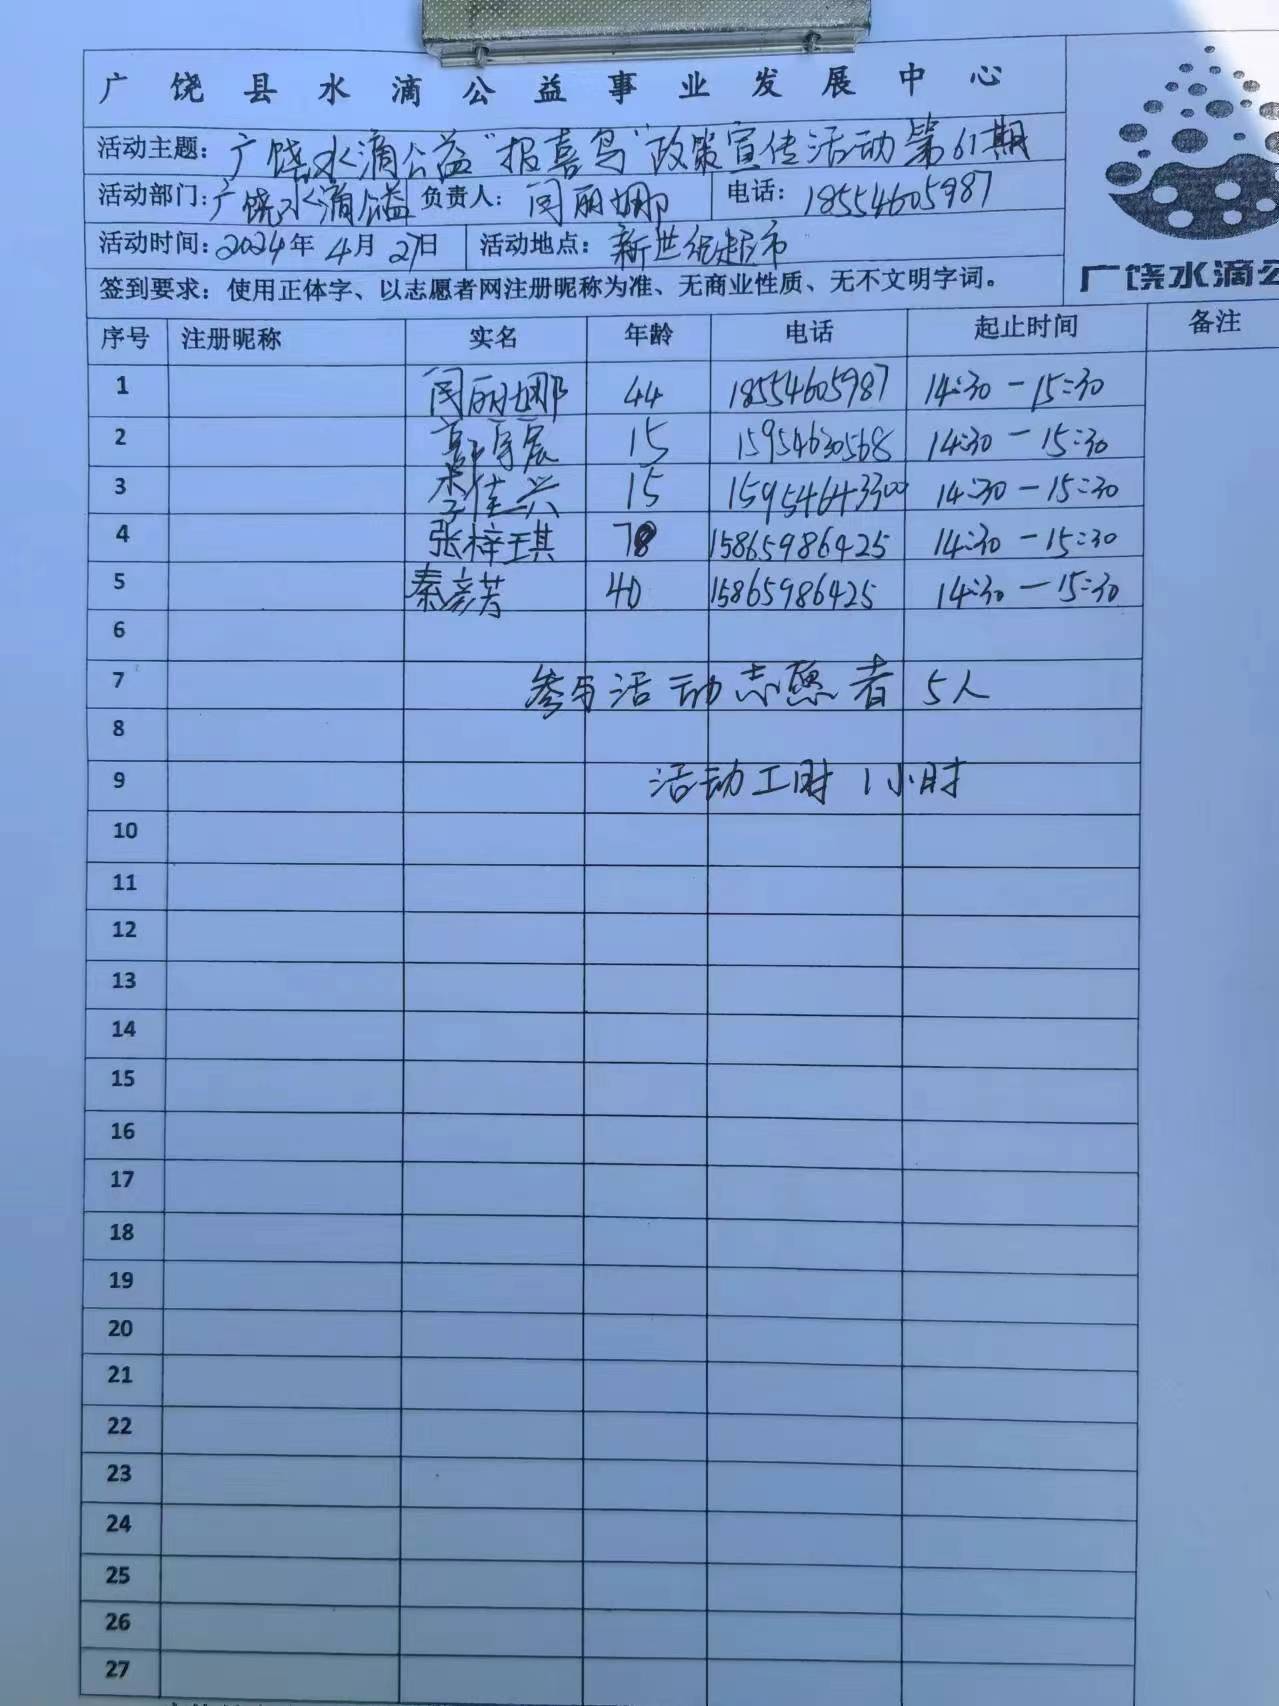 广饶县水滴公益事业发展中心
活动主题：广饶水滴公益"报喜鸟"政策宣传活动第61期
活动部门：广饶水滴公益 负责人：闫丽娜 电话：18554605987
活动时间：2024年4月27日 活动地点：新世纪超市
签到要求：使用正体字、以志愿者网注册昵称为准、无商业性质、无不文明字词。
广饶水滴公
序号 注册昵称 实名 年龄 电话 起止时间 备注
1 闫丽娜 44 18554605987 14:30-15:30
2 郭宇宸 15 15954630568 14:30-15:30
3 李佳兴 15 15954643300 14:30-15:30
4 张梓琪 15865986425 14:30-15:30
5 秦彦芳 40 15865986425 14:30-15:30
6
7 参与活动志愿者5人
8
9 活动工时1小时
10
11
12
13
14
15
16
17
18
19
20
21
22
23
24
25
26
27